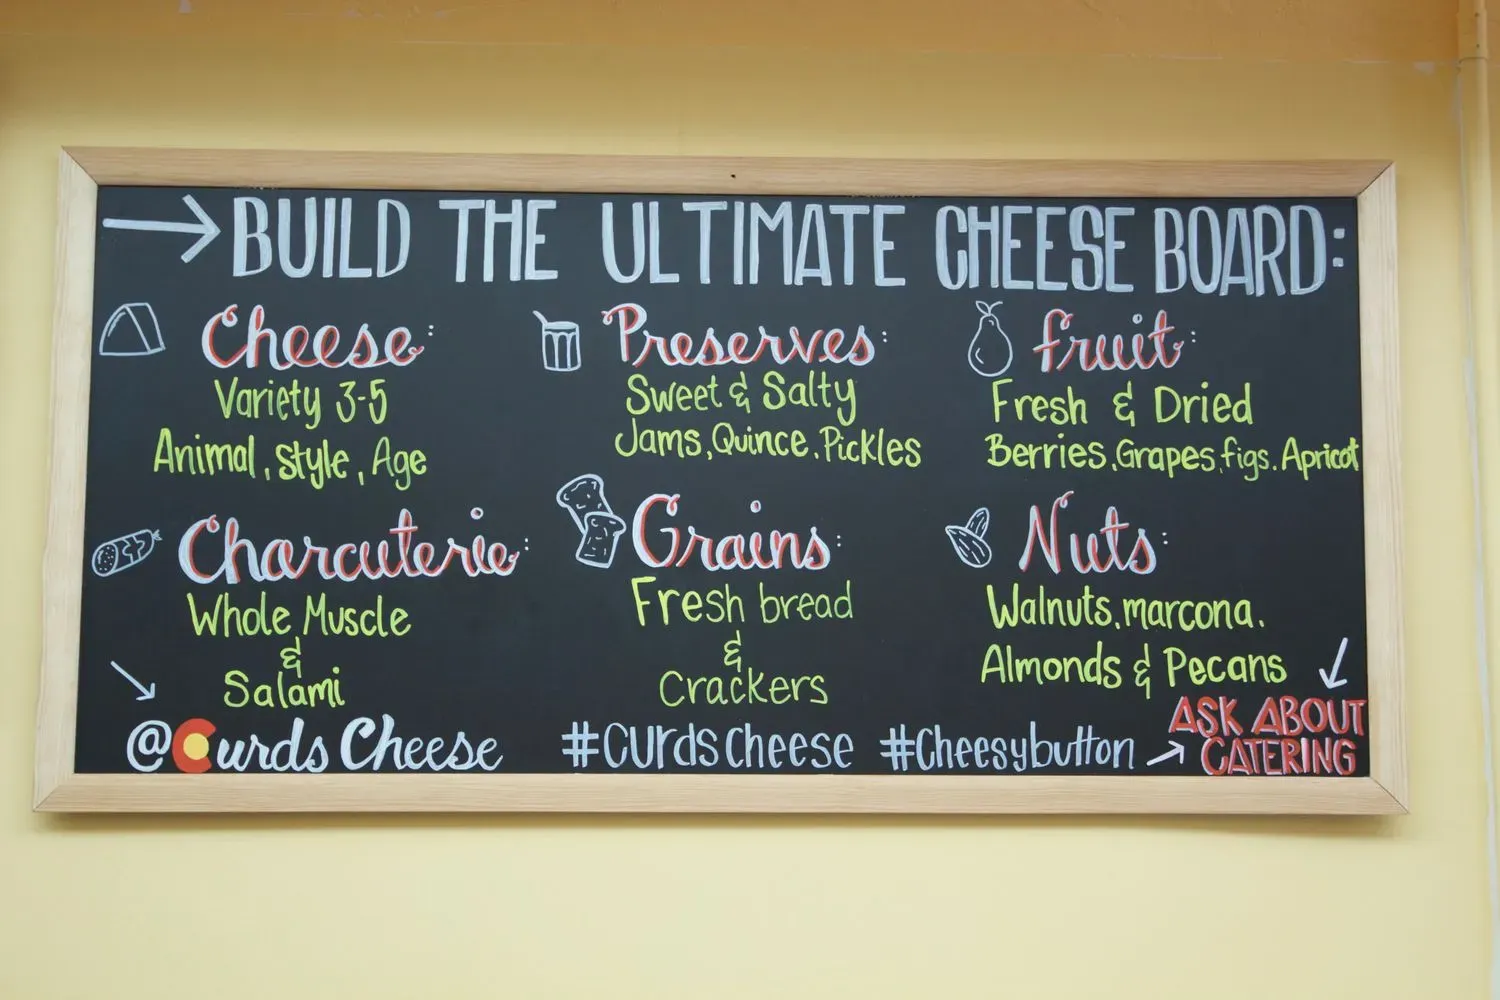 BUILD THE ULTIMATE CHEESE BOARD:
Cheese:
Variety 3-5
Animal, Style, Age
Preserves:
Sweet & Salty
Jams, Quince, Pickles
fruit:
Fresh & Dried
Berries, Grapes, figs, Apricot
Charcuterie:
Whole Muscle
&
Salami
Grains:
Fresh bread
&
Crackers
Nuts:
Walnuts, marcona,
Almonds & Pecans
@Curds Cheese
#Curds cheese
#Cheesybutton
ASK ABOUT
CATERING